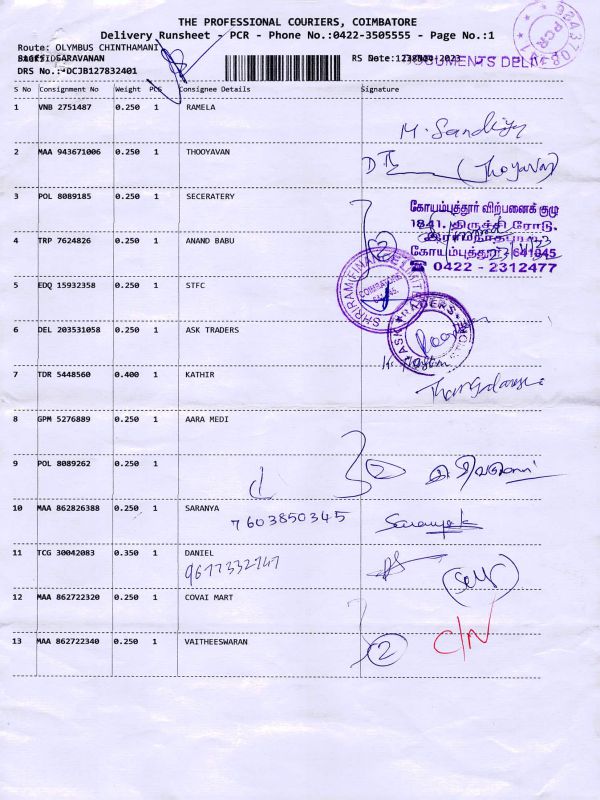 THE PROFESSIONAL COURIERS, COIMBATORE
Delivery Runsheet - PCR - Phone No.:0422-3505555 - Page No.:1
Route: OLYMBUS CHINTHAMANI
SARAVANAN
RS Date:
DRS No.: DCJB127832401
S No Consignment No Weight PCS Consignee Details Signature
1 VNB 2751487 0.250 1 RAMELA
M. Sandiya
2 MAA 943671006 0.250 1 THOOYAVAN
(Thoyavan)
3 POL 8089185 0.250 1 SECERATERY
கோயம்புத்தூர் விற்பனைக் குழு
1841, திருச்சி ரோடு,
இராமநாதபுரம்,
கோயம்புத்தூர் - 641045
☎ 0422 - 2312477
4 TRP 7624826 0.250 1 ANAND BABU
2
SHRIRAM FINANCE LIMITED
COIMBATORE
5 EDQ 15932358 0.250 1 STFC
6 DEL 203531058 0.250 1 ASK TRADERS
ASK TRADERS
7 TDR 5448560 0.400 1 KATHIR
8 GPM 5276889 0.250 1 AARA MEDI
9 POL 8089262 0.250 1
2
10 MAA 862826388 0.250 1 SARANYA
7603850345
Saranya.k
11 TCG 30042083 0.350 1 DANIEL
9677332747
(Self)
12 MAA 862722320 0.250 1 COVAI MART
C/N
13 MAA 862722340 0.250 1 VAITHEESWARAN
2